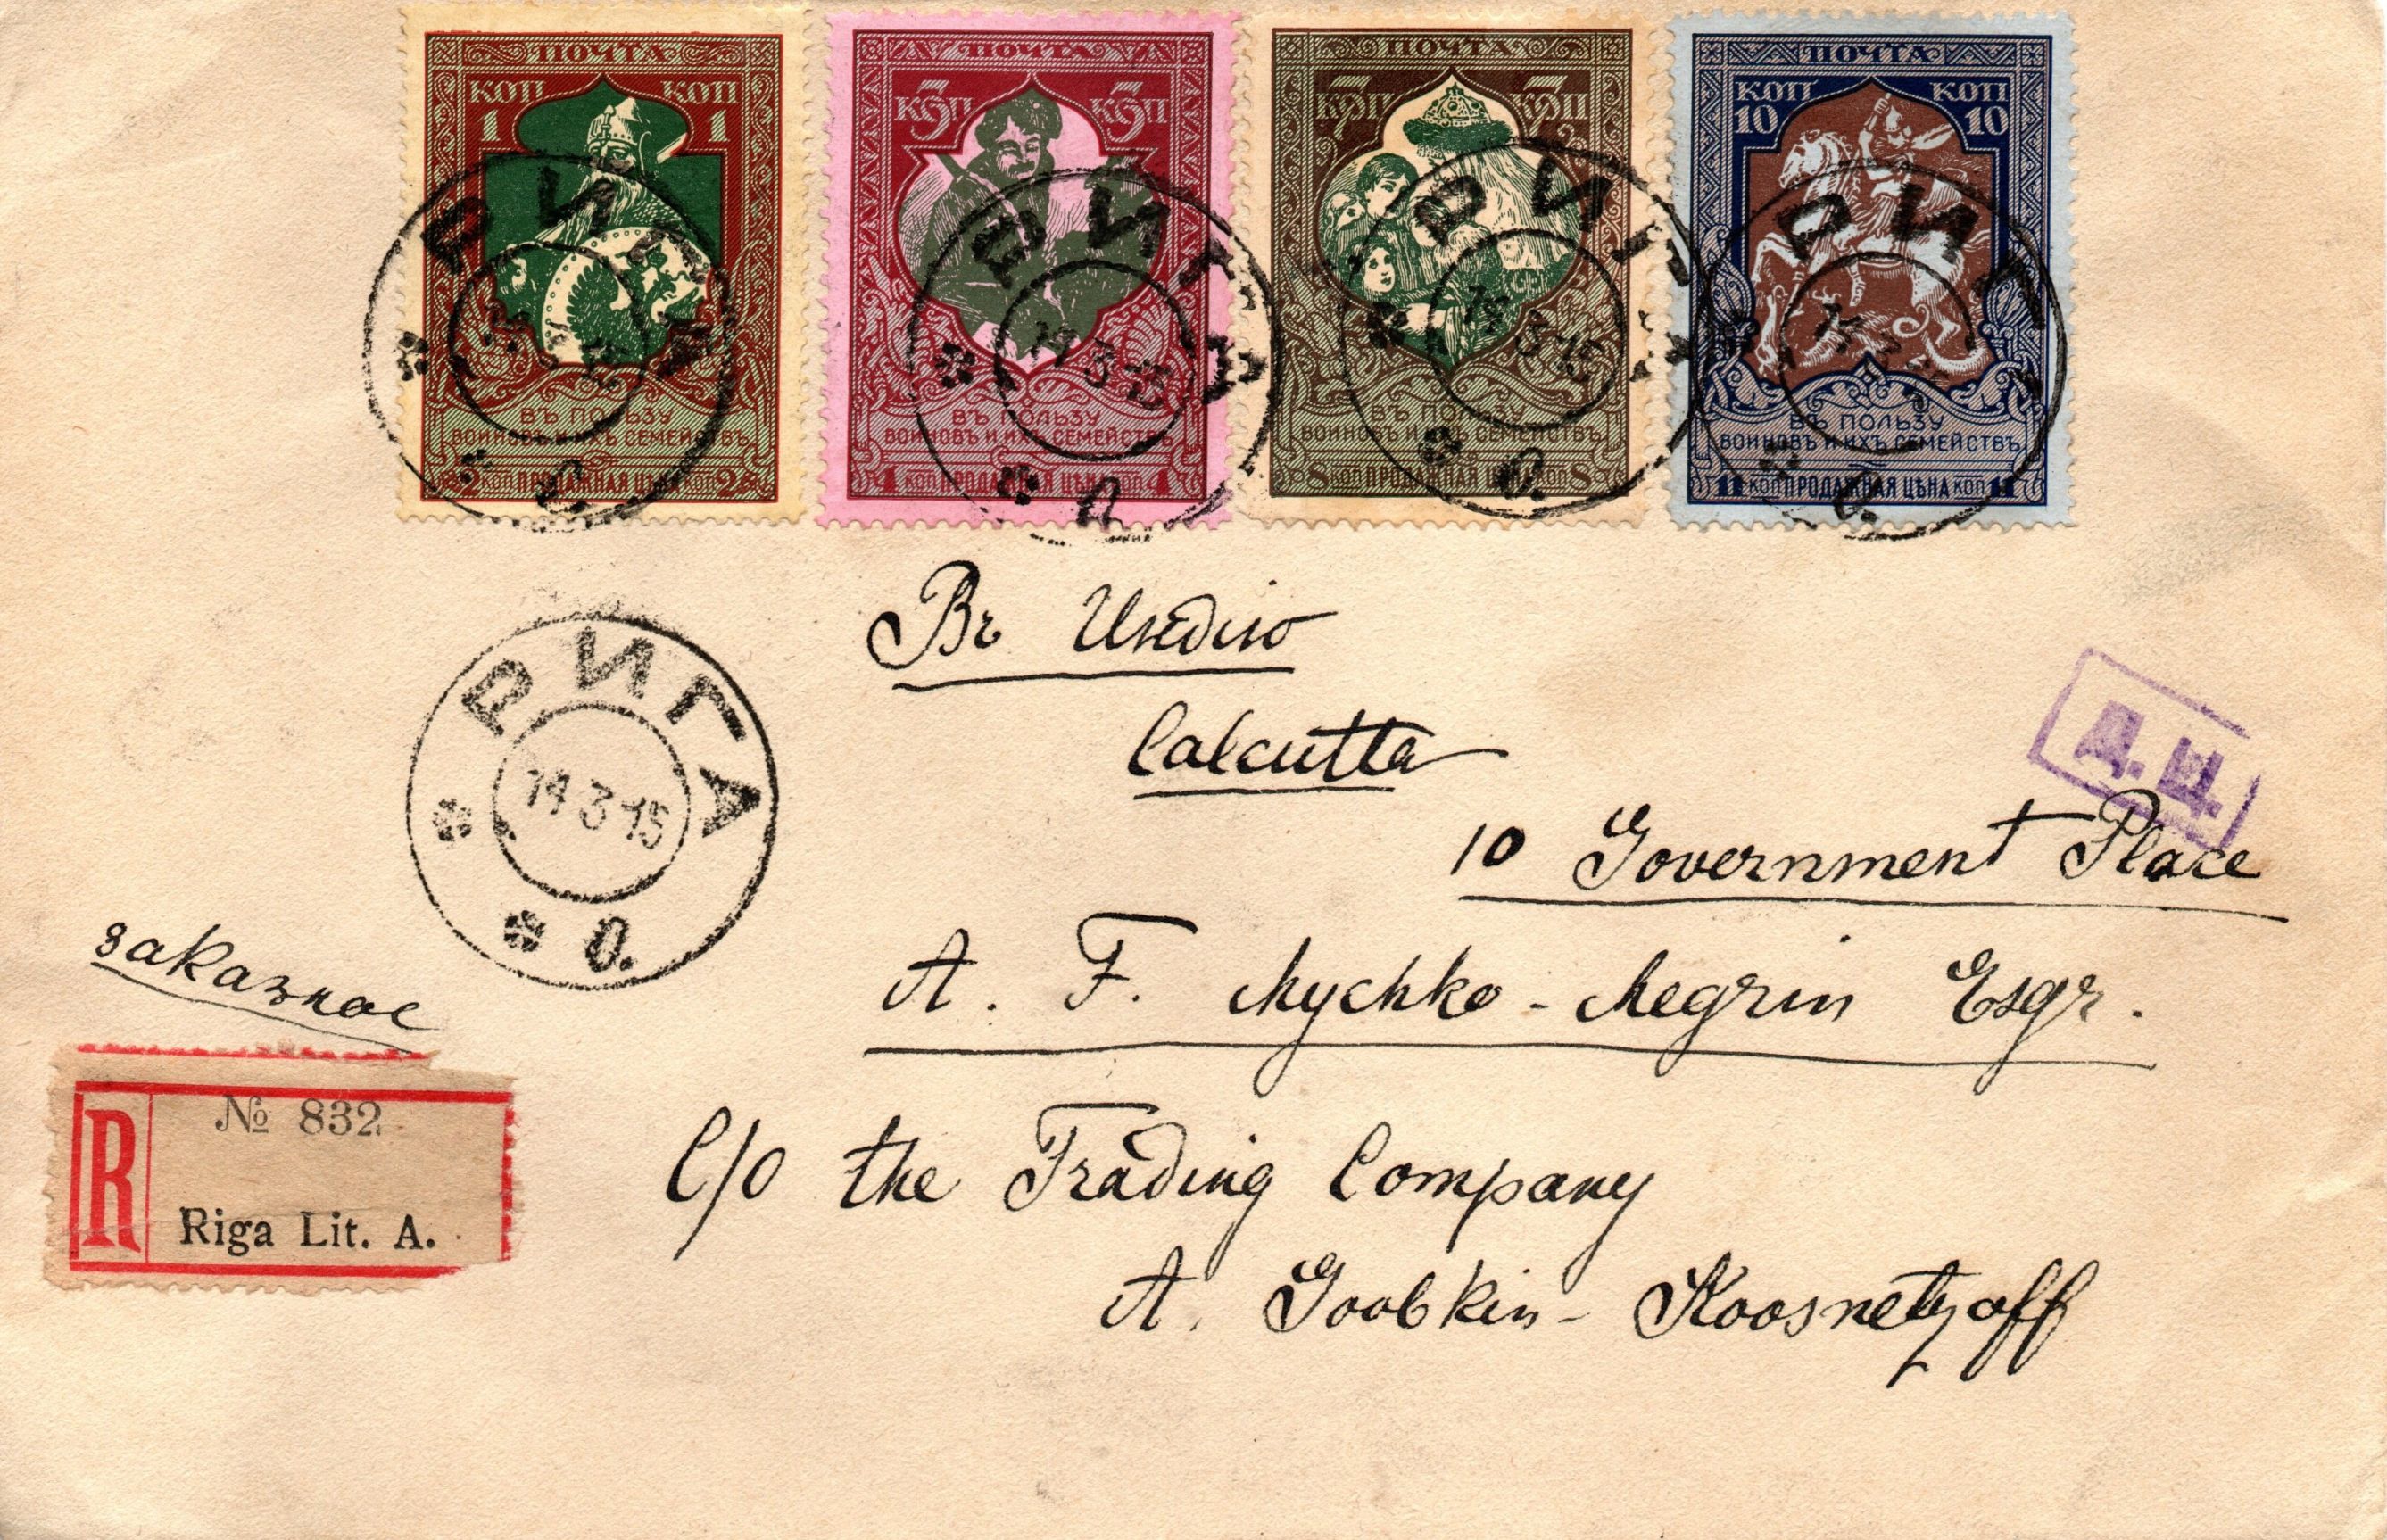 ПОЧТА
КОП 1 КОП 1
ВЪ ПОЛЬЗУ
ВОИНОВЪ И ИХЪ СЕМЕЙСТВЪ
2 КОП ПРОДАЖНАЯ ЦѢНА КОП 2
ПОЧТА
КОП 3 КОП 3
ВЪ ПОЛЬЗУ
ВОИНОВЪ И ИХЪ СЕМЕЙСТВЪ
4 КОП ПРОДАЖНАЯ ЦѢНА КОП 4
ПОЧТА
КОП 7 КОП 7
ВЪ ПОЛЬЗУ
ВОИНОВЪ И ИХЪ СЕМЕЙСТВЪ
8 КОП ПРОДАЖНАЯ ЦѢНА КОП 8
ПОЧТА
КОП 10 КОП 10
ВЪ ПОЛЬЗУ
ВОИНОВЪ И ИХЪ СЕМЕЙСТВЪ
11 КОП ПРОДАЖНАЯ ЦѢНА КОП 11
РИГА
О.
РИГА
14 3 15
О.
РИГА
14 3 15
О.
РИГА
О.
Въ Индію
Calcutta
Д. Ц.
РИГА
14 3 15
О.
10 Government Place
заказное
A. F. Mychko-Megrin Esqr.
№ 832
R
Riga Lit. A.
C/O the Trading Company
A. Goobkin-Koosnetzoff